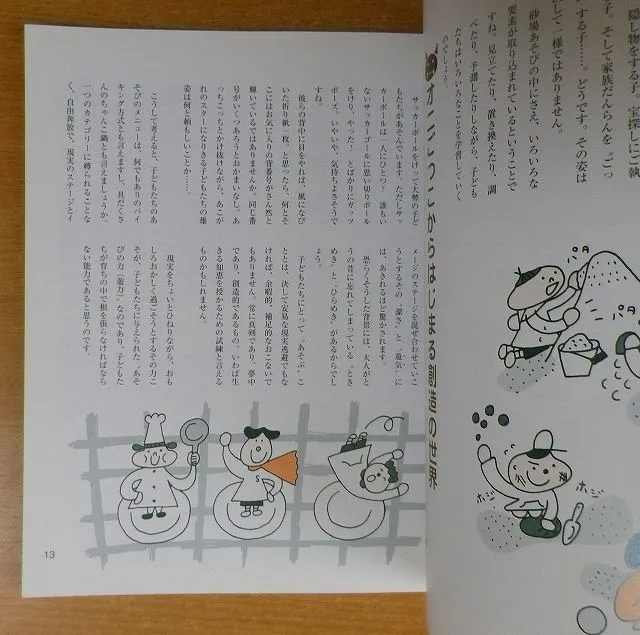 隠し物をする子。宝探しにご執
する子……。どうです。その姿は
子。そして家族だんらんを〝ごっ
して一様ではありません。
砂場あそびの中にさえ、いろいろな
要素が取り込まれているということで
すね。見立てたり、置き換えたり、調
べたり、予番したりしながら、子ども
たちはいろいろなことを学習していく
のでしょう。
オニごっこからはじまる創造の世界
サッカーボールをけって大勢の子ど
もたちがあそんでいます。ただしサッ
カーボールは一人にひとつ！　誰もい
ないサッカーゴールに思い切りボール
をけり、やった！　とばかりにガッツ
ポーズ。いやいや、気持ちよさそうで
すね。
彼らの背中に目をやれば、風になび
いた折り紙一枚、と思ったら、何とそ
こにはお気に入りの背番号がさん然と
輝いているではありませんか。同じ番
号がいくつあろうとおかまいなし。あ
っちこっちとかけ抜けながら、あこが
れのスターになりきる子どもたちの雄
姿は何と頼もしいことか……。
こうして考えると、子どもたちのあ
そびのメニューは、何でもありのバイ
キング方式とも言えますし、具だくさ
んのちゃんこ鍋とも言えましょうか。
一つのカテゴリーに縛られることな
く、自由奔放で、現実のステージとイ
メージのステージを混ぜ合わせていこ
うとするその〝潔さ〟と〝遊気〟に
は、あきれるほど驚かされます。
恐らくそうした背景には、大人がと
うの昔に忘れてしまっている〝とき
めき〟と〝ひらめき〟があるからでし
ょう。
子どもたちにとって〝あそぶ〟こ
ととは、決して安易な現実逃避でもな
ければ、余暇的、補足的なおこないで
もありません。常に真剣であり、夢中
であり、創造的であるもの。いわば生
きる知恵を授かるための試練と言える
ものかもしれません。
現実をちょいとひねりながら、おも
しろおかしく過ごそうとするその力こ
そが、子どもたちに与えられた〝あそ
びの力（遊力）〟なのであり、子どもた
ちが育ちの中で根を張らなければなら
ない能力であると思うのです。
S
13
パタ
パタ
ホジ
ホジ